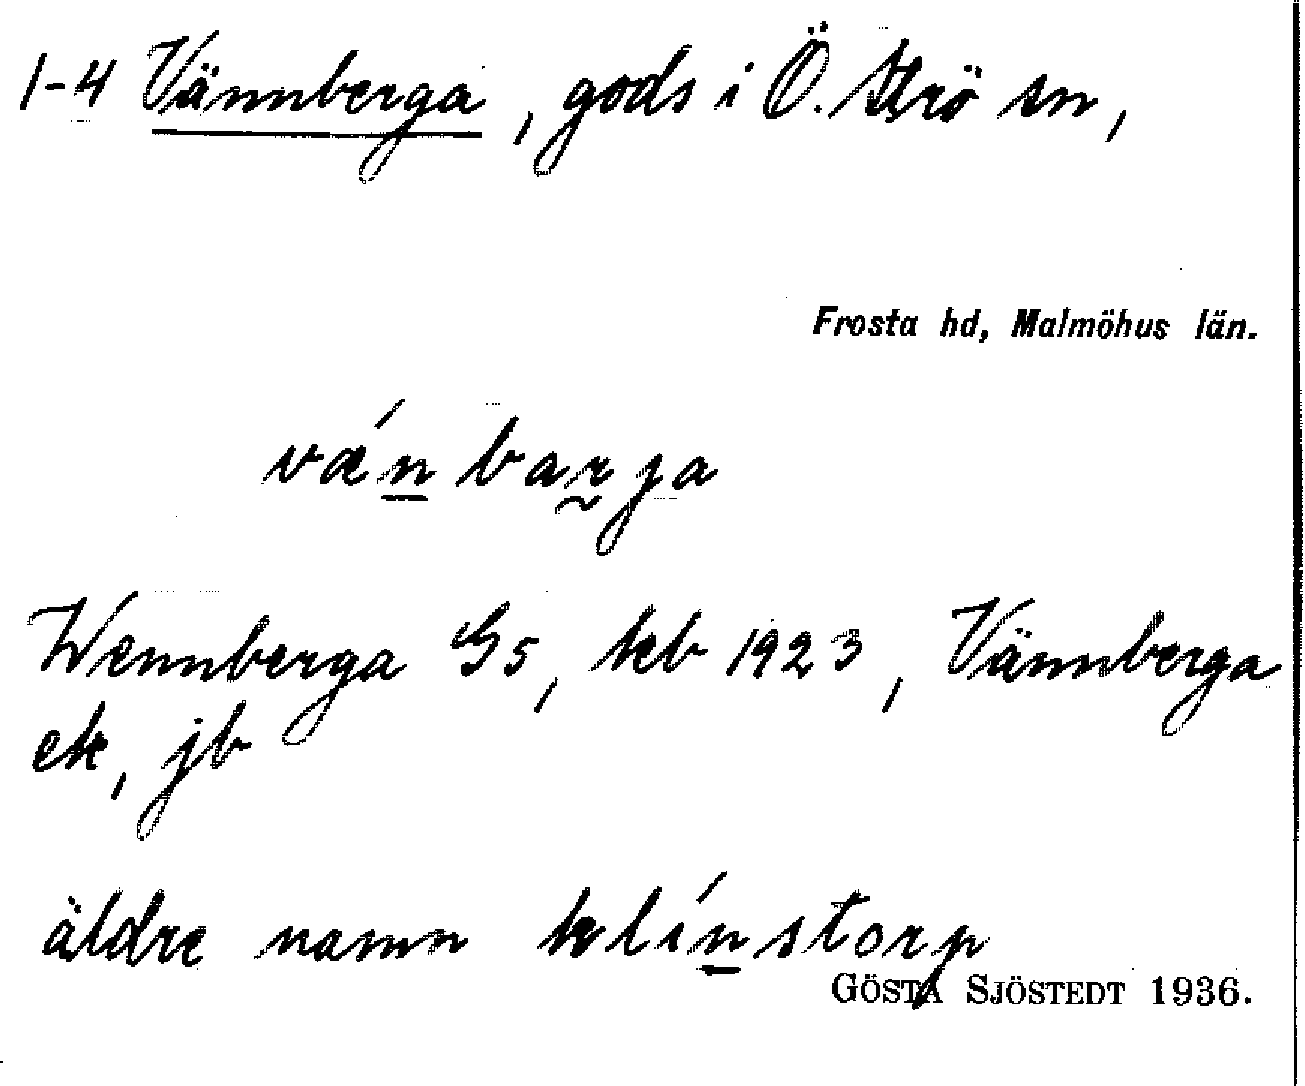 1-4 Vännberga, gods i Ö. Strö sn,
Frosta hd, Malmöhus län.
vǽn̲ bar̰ja
Wennberga G5, kb 1923, Vännberga
ek, jb
äldre namn klín̲storp
GÖSTA SJÖSTEDT 1936.